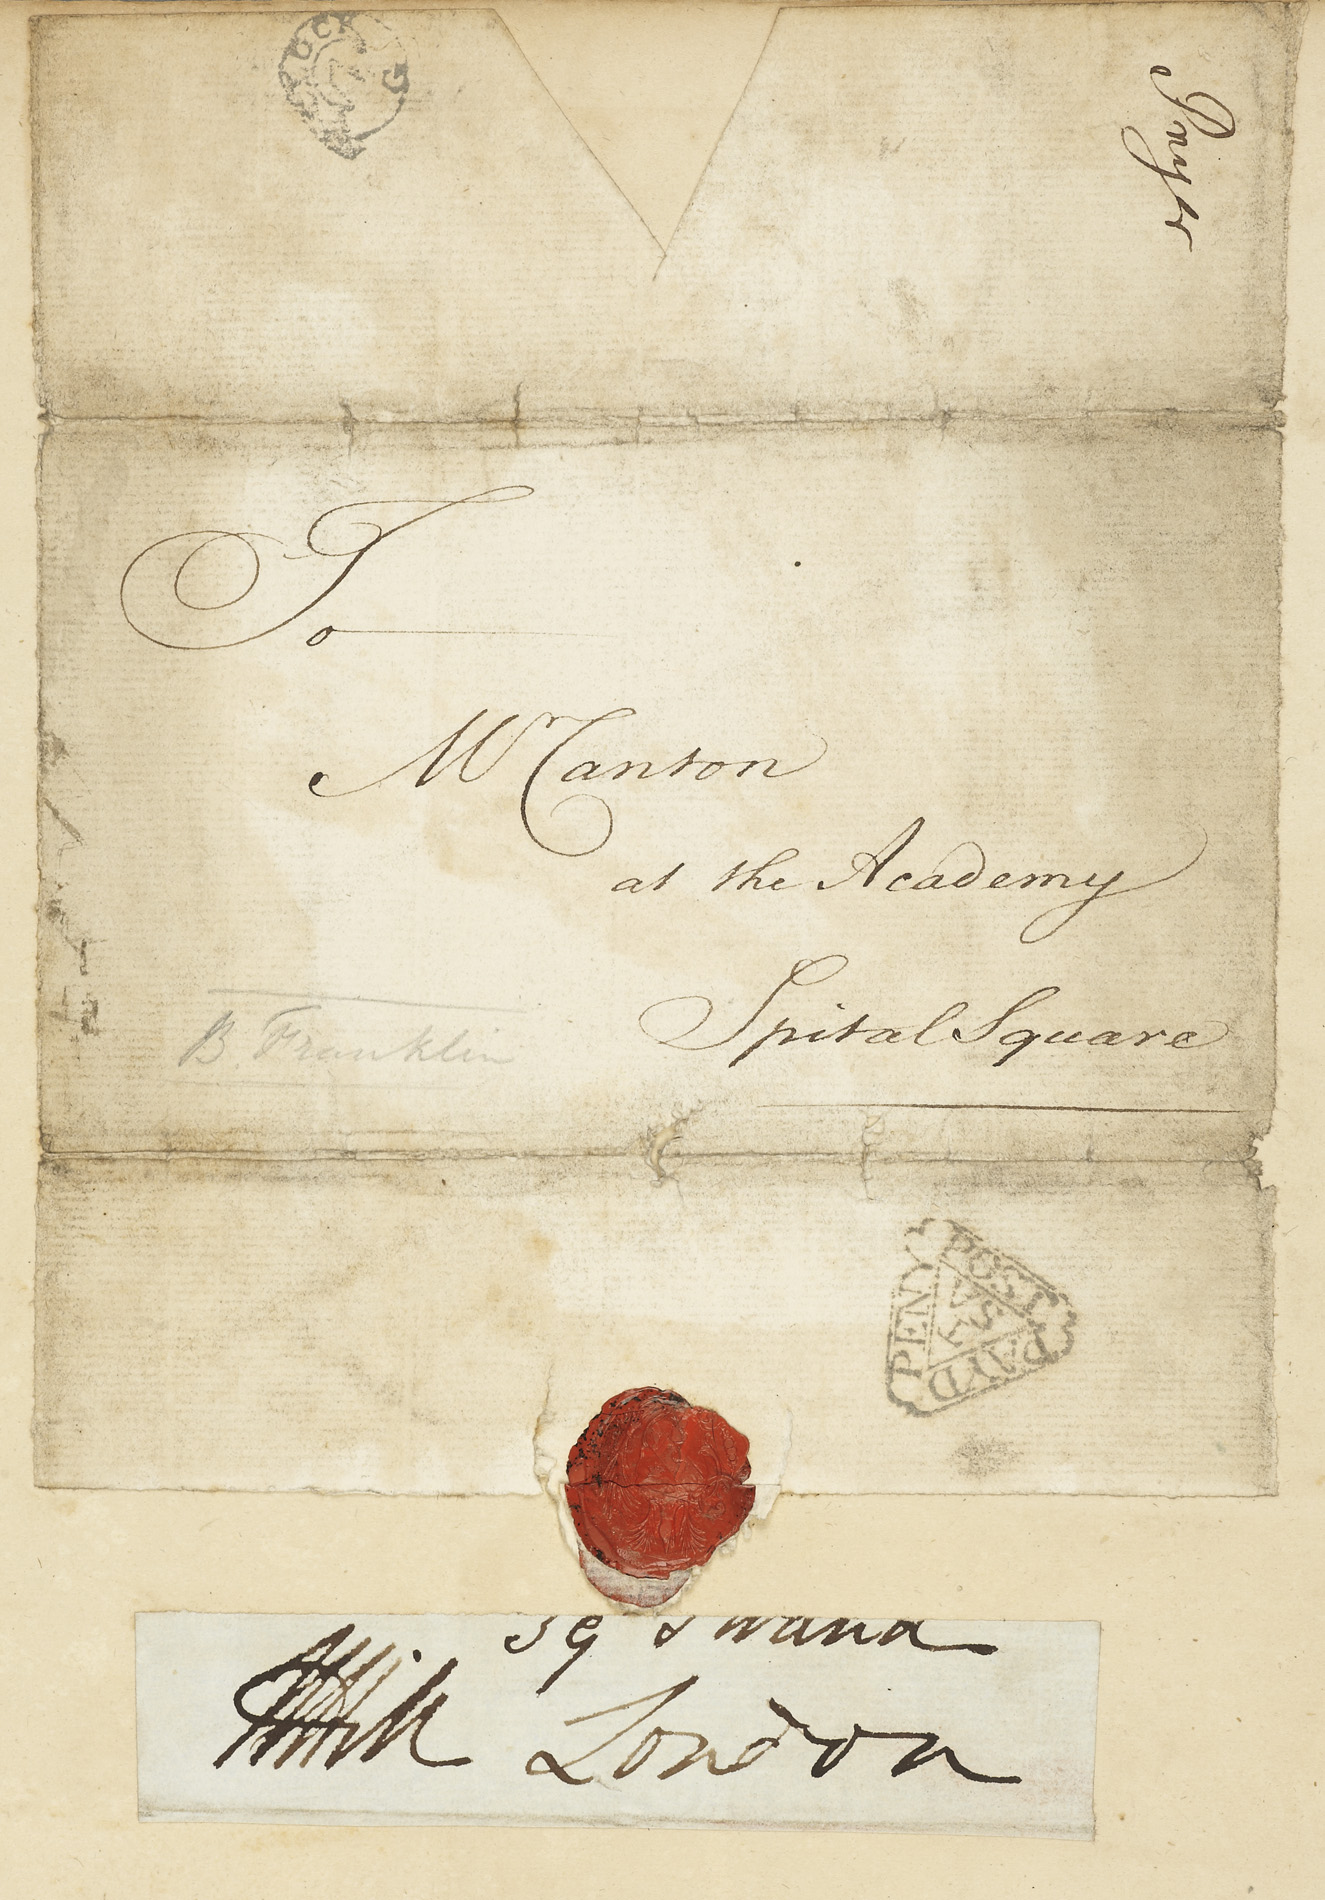 To
Mr Canton
at the Academy
Spital Square
B. Franklin
PENY
POST
PAYD
59 Strand
London